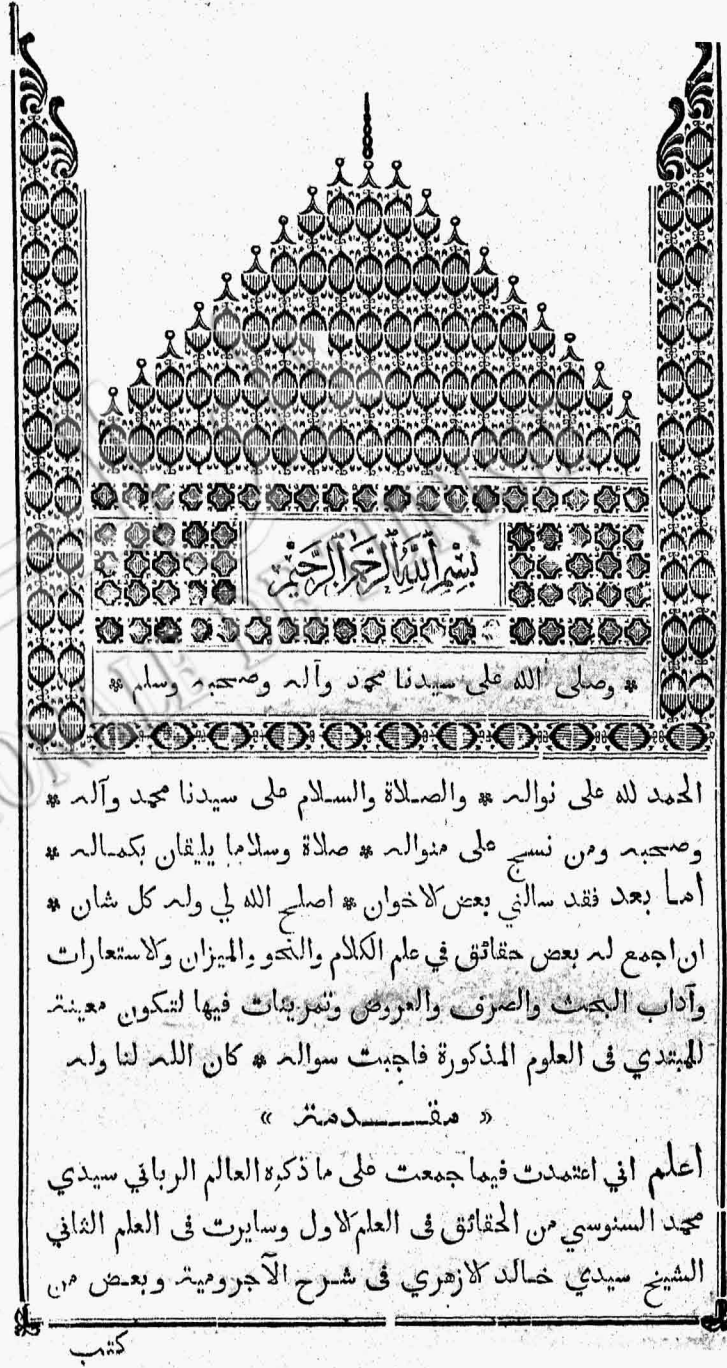 بِسْمِ ٱللَّهِ ٱلرَّحْمَٰنِ ٱلرَّحِيْمِ
* وصلى الله على سيدنا محمد وآله وصحبه وسلم *
الحمد لله على نواله * والصلاة والسلام على سيدنا محمد وآله *
وصحبه ومن نسج على منواله * صلاة وسلاما يليقان بكماله *
أما بعد فقد سالني بعض الاخوان * اصلح الله لي وله كل شان *
ان اجمع له بعض حقائق في علم الكلام والنحو والميزان والاستعارات
وآداب البحث والصرف والعروض وتمرينات فيها لتكون معينة
للمبتدي في العلوم المذكورة فاجبت سواله * كان الله لنا وله
« مقـــدمة »
أعلم اني اعتمدت فيما جمعت على ما ذكره العالم الرباني سيدي
محمد السنوسي من الحقائق في العلم الاول وسايرت في العلم الثاني
الشيخ سيدي خالد الازهري في شرح الآجرومية وبعض من
كتب